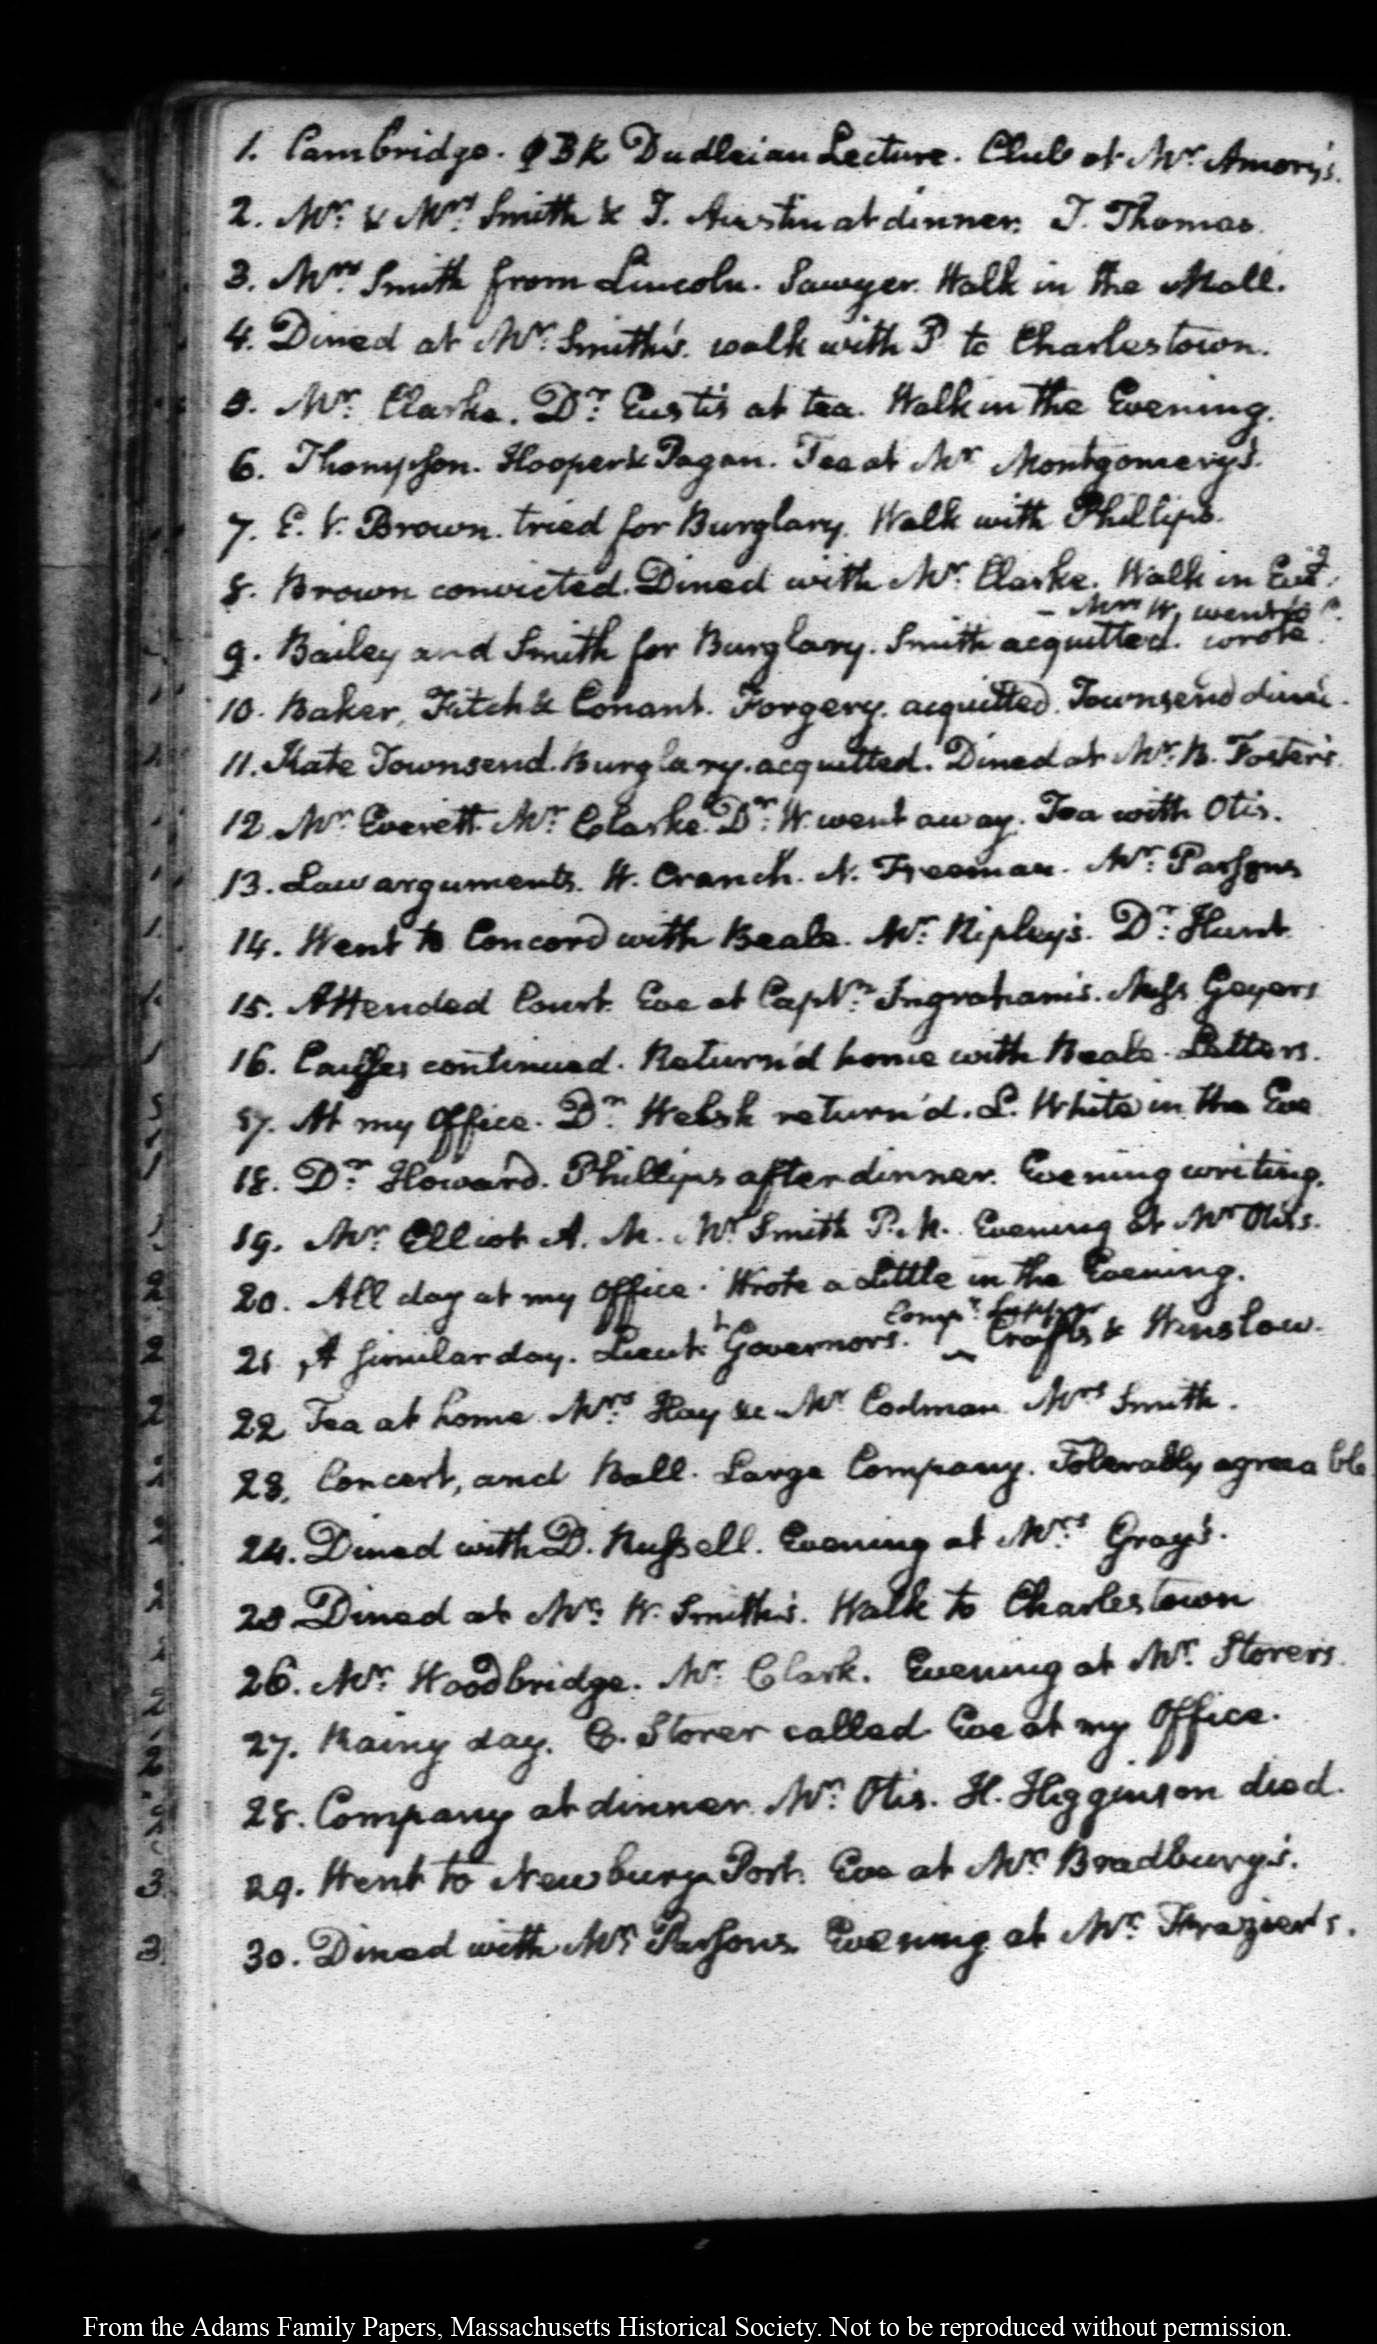 1. Cambridge. ΦBK Dudleian Lecture. Club at Mr. Amory's.
2. Mr. & Mrs. Smith & J. Austin at dinner. J. Thomas.
3. Mrs. Smith from Lincoln. Sawyer. Walk in the Mall.
4. Dined at Mr. Smith's. walk with P to Charlestown.
5. Mr. Clarke. Dr. Eustis at tea. Walk in the Evening.
6. Thompson. Hooper & Pagan. Tea at Mr. Montgomery's.
7. E. V. Brown. tried for Burglary. Walk with Phillips.
8. Brown convicted. Dined with Mr. Clarke. Walk in Eveg.
- Mrs. W. went to
9. Bailey and Smith for Burglary. Smith acquitted. wrote.
10. Baker, Fitch & Conant. Forgery. acquitted. Townsend
11. Kate Townsend. Burglary. acquitted. Dined at Mr. B. Foster's.
12. Mr. Everett. Mr. Clarke. Dr. W. went away. Tea with Otis.
13. Law arguments. W. Cranch. N. Freeman. Mr. Parsons
14. Went to Concord with Beale. Mr. Ripley's. Dr. Hunt.
15. Attended Court. Eve at Captn. Ingraham's. Miss Geyers
16. Causes continued. Return'd home with Beale. Letters.
17. At my Office. Dr. Welsh return'd. L. White in the Eve
18. Dr. Howard. Phillips after dinner. Evening writing.
19. Mr. Elliot A. M. Mr. Smith P. M. Evening at Mr. Otis's.
20. All day at my Office. Wrote a little in the Evening.
Compy. Supper
21. A similar day. Lieut. Governors. Crafts & Winslow.
22. Tea at home. Mrs. Hay &c Mr. Codman Mrs. Smith.
23. Concert, and Ball. Large Company. Tolerably agreeable
24. Dined with D. Russell. Evening at Mrs. Gray's.
25 Dined at Mr. W. Smith's. Walk to Charlestown
26. Mr. Woodbridge. Mr. Clark. Evening at Mr. Storer's.
27. Rainy day. C. Storer called. Eve at my Office.
28. Company at dinner. Mr. Otis. H. Higginson died.
29. Went to Newbury-Port. Eve at Mr. Bradbury's.
30. Dined with Mr. Parsons. Evening at Mr. Frazier's.
From the Adams Family Papers, Massachusetts Historical Society. Not to be reproduced without permission.